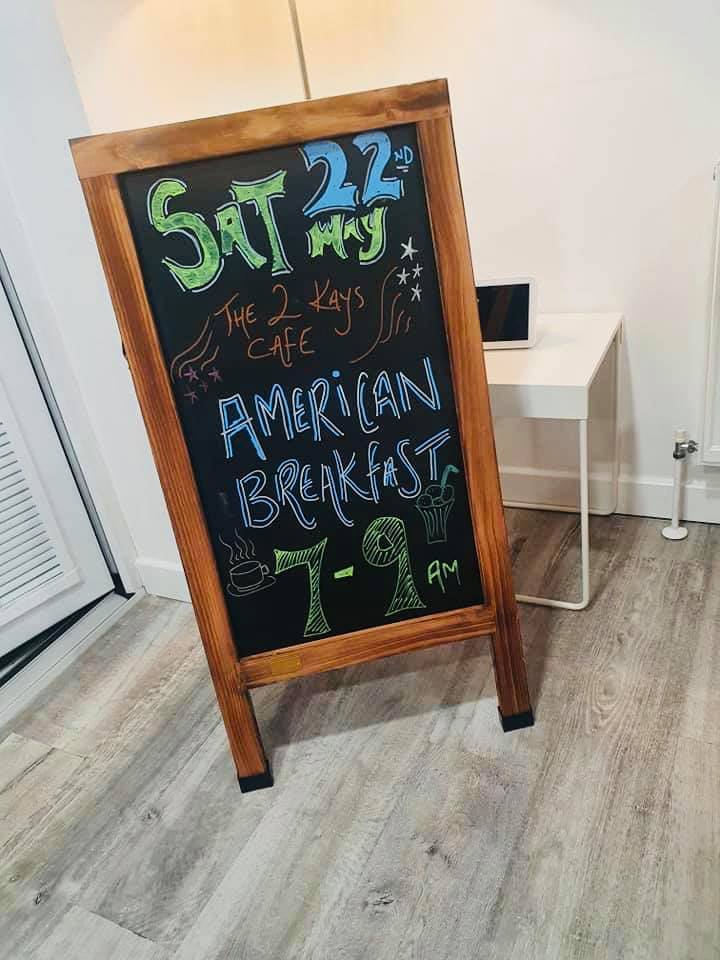 SAT 22ND
MAY
THE 2 KAYS
CAFE
AMERiCAN
BREAKFAST
7-9 AM